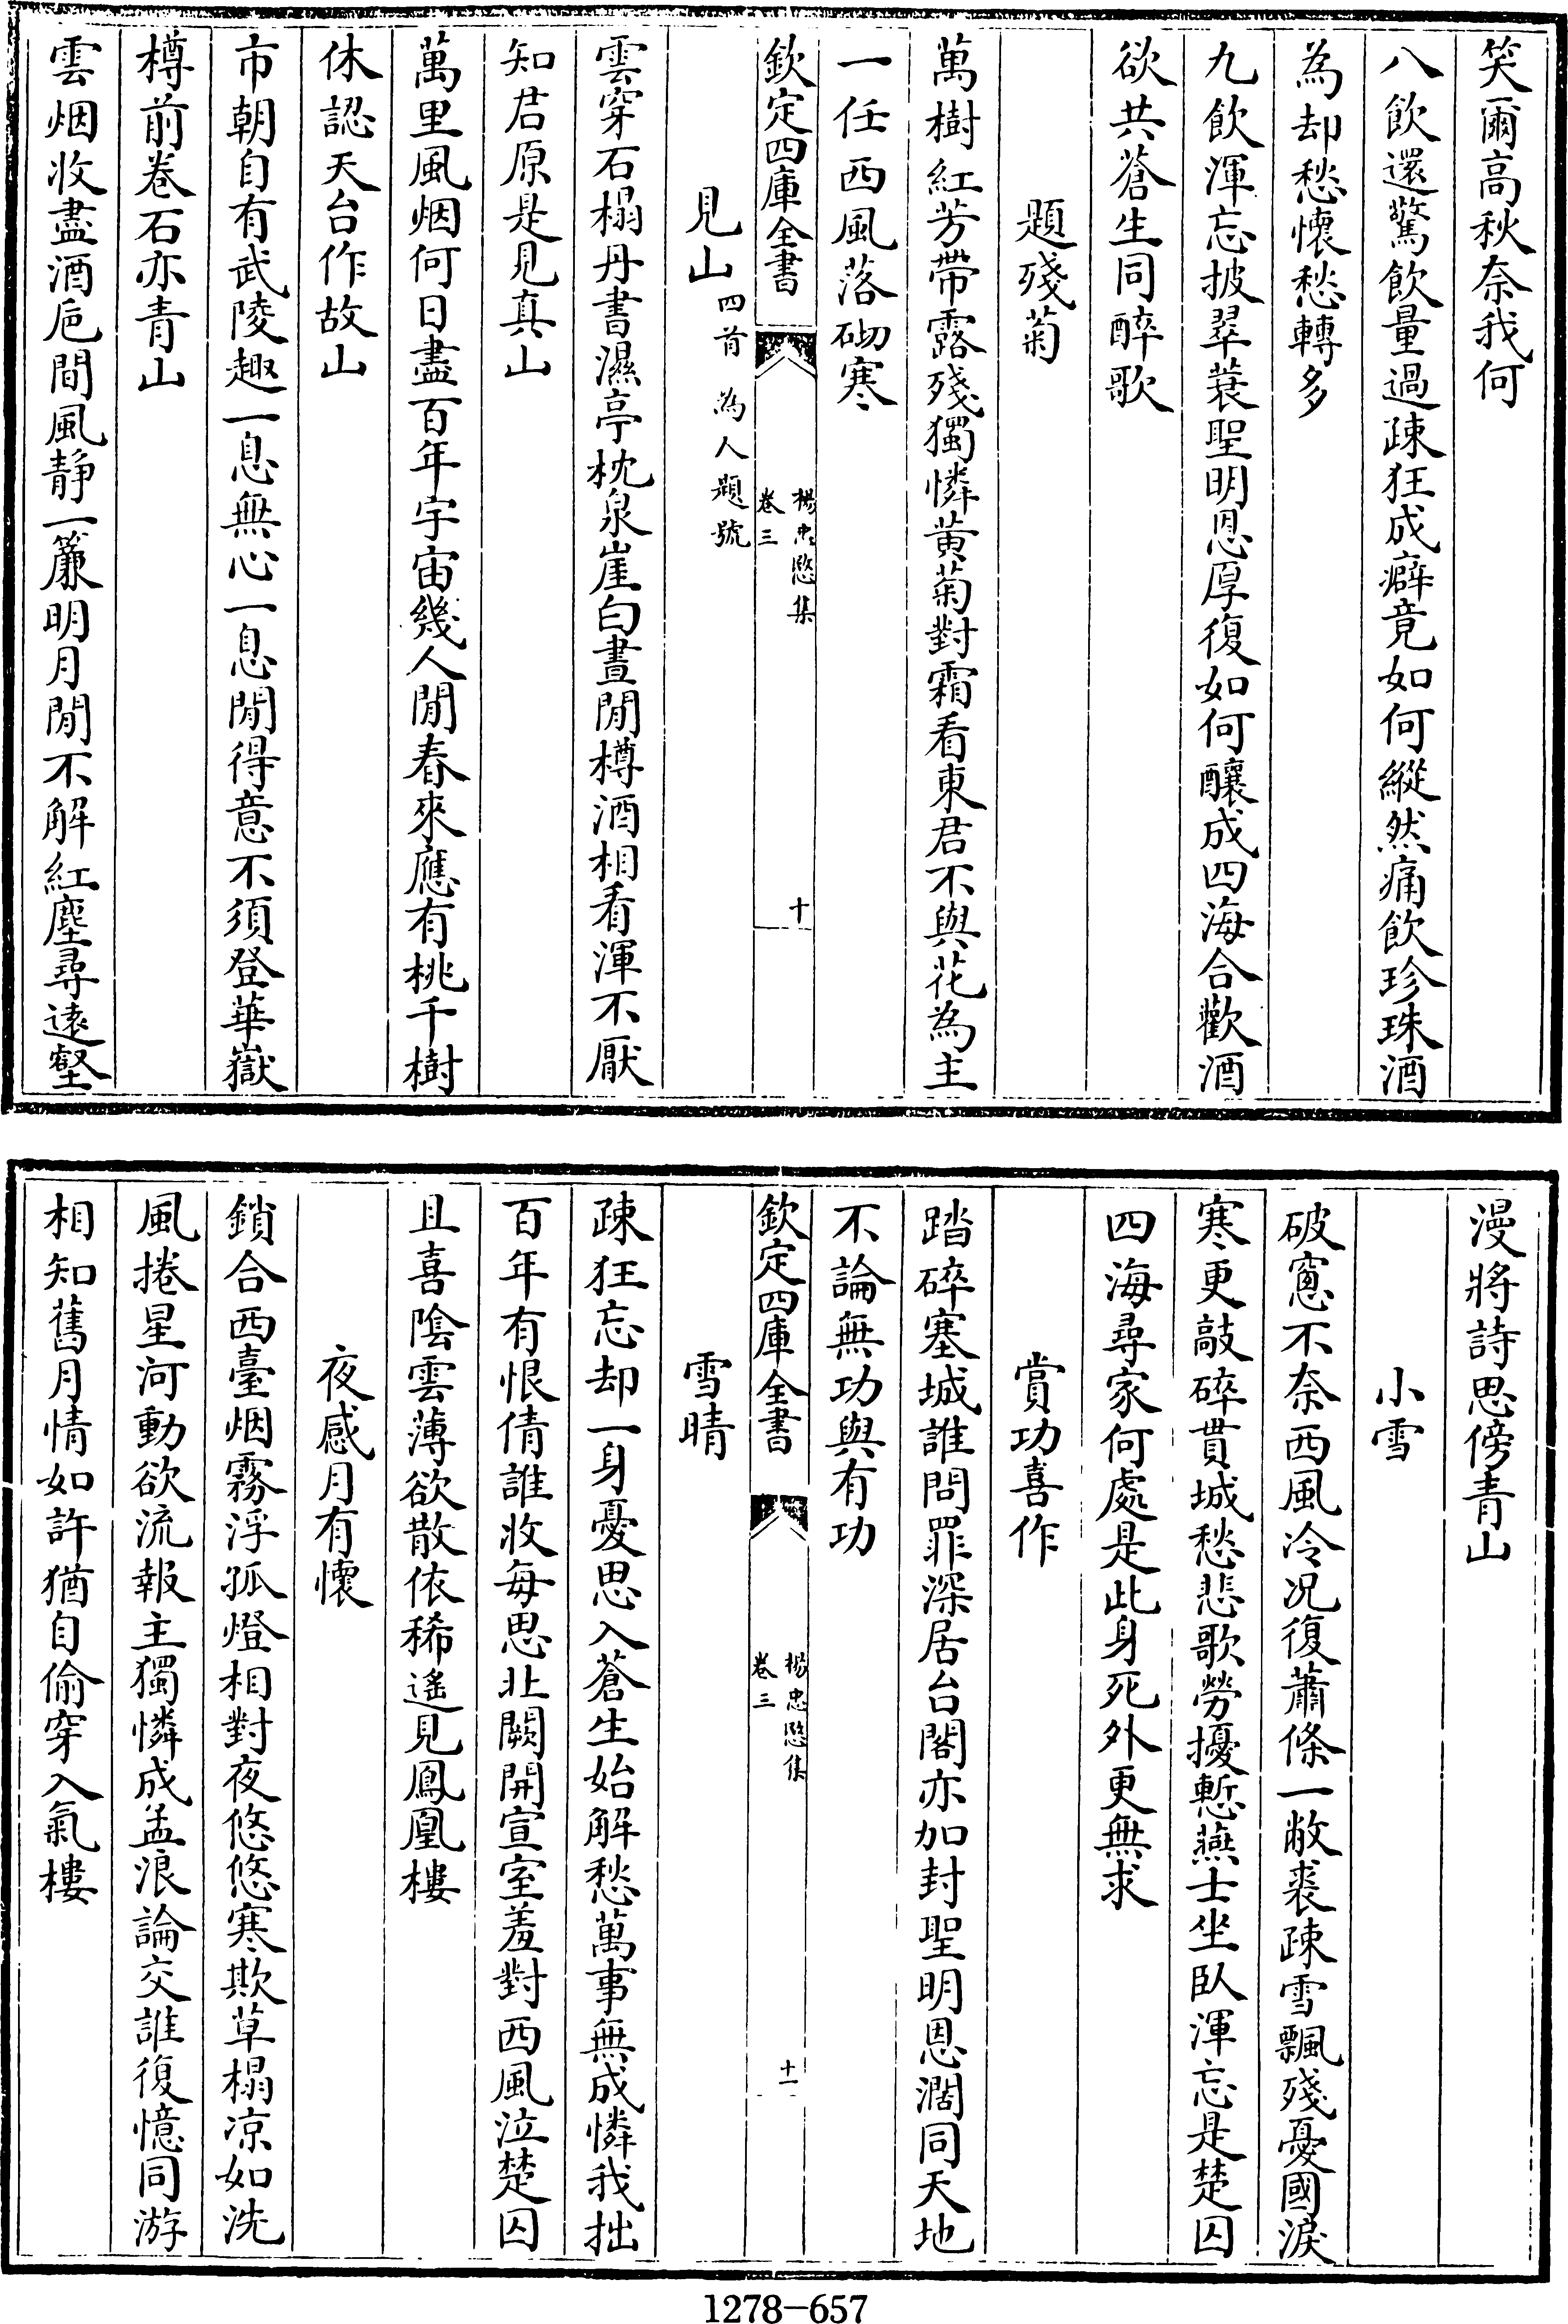 笑爾高秋奈我何
八飲還驚飲量過疎狂成癖竟如何縱然痛飲珍珠酒
為却愁懷愁轉多
九飲渾忘披翠蓑聖明恩厚復如何釀成四海合歡酒
欲共蒼生同醉歌
題殘菊
萬樹紅芳帶露殘獨憐黄菊對霜看東君不與花為主
一任西風落砌寒
欽定四庫全書
楊忠愍集
卷三
十
見山四首為人題號
雲穿石榻丹書濕亭枕泉崖白晝閒樽酒相看渾不厭
知君原是見真山
萬里風烟何日盡百年宇宙幾人閒春來應有桃千樹
休認天台作故山
市朝自有武陵趣一息無心一息閒得意不須登華嶽
樽前卷石亦青山
雲烟收盡酒巵間風静一簾明月閒不解紅塵尋遠壑
漫將詩思傍青山
小雪
破窻不奈西風冷况復蕭條一敝裘疎雪飄殘憂國淚
寒更敲碎貫城愁悲歌勞擾慙燕士坐臥渾忘是楚囚
四海尋家何處是此身死外更無求
賞功喜作
踏碎塞城誰問罪深居台閣亦加封聖明恩濶同天地
不論無功與有功
欽定四庫全書
楊忠愍集
卷三
十一
雪晴
疎狂忘却一身憂思入蒼生始解愁萬事無成憐我拙
百年有恨倩誰收每思北闕開宣室羞對西風泣楚囚
且喜陰雲薄欲散依稀遙見鳳凰樓
夜感月有懷
鎖合西臺烟霧浮孤燈相對夜悠悠寒欺草榻凉如洗
風捲星河動欲流報主獨憐成孟浪論交誰復憶同游
相知舊月情如許猶自偷穿入氣樓
1278-657